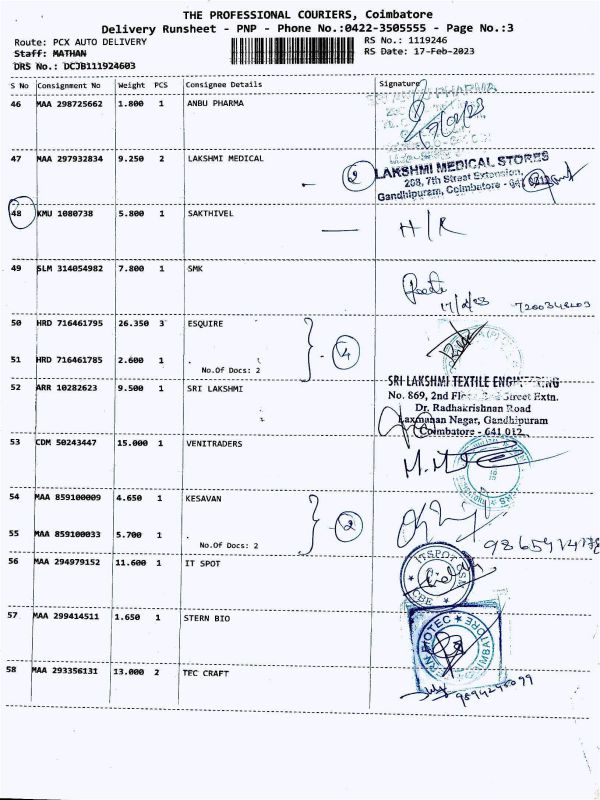 THE PROFESSIONAL COURIERS, Coimbatore
Delivery Runsheet - PNP - Phone No.:0422-3505555 - Page No.:3
Route: PCX AUTO DELIVERY
RS No.: 1119246
Staff: MATHAN
RS Date: 17-Feb-2023
DRS No.: DCJB111924603
S No Consignment No Weight PCS Consignee Details Signature
46 MAA 298725662 1.800 1 ANBU PHARMA
47 MAA 297932834 9.250 2 LAKSHMI MEDICAL
2
LAKSHMI MEDICAL STORES
268, 7th Street Extension,
Gandhipuram, Coimbatore - 641 012
48 KMU 1080738 5.800 1 SAKTHIVEL
H/R
49 SLM 314054982 7.800 1 SMK
50 HRD 716461795 26.350 3 ESQUIRE
4
51 HRD 716461785 2.600 1
No.Of Docs: 2
52 ARR 10282623 9.500 1 SRI LAKSHMI
SRI LAKSHMI TEXTILE ENGINEERING
No. 869, 2nd Floor, 2nd Street Extn.
Dr. Radhakrishnan Road
Laxmanan Nagar, Gandhipuram
Coimbatore - 641 012.
53 CDM 50243447 15.000 1 VENITRADERS
54 MAA 859100009 4.650 1 KESAVAN
2
55 MAA 859100033 5.700 1 .
No.Of Docs: 2
56 MAA 294979152 11.600 1 IT SPOT
ITSPOT
CBE
57 MAA 299414511 1.650 1 STERN BIO
58 MAA 293356131 13.000 2 TEC CRAFT